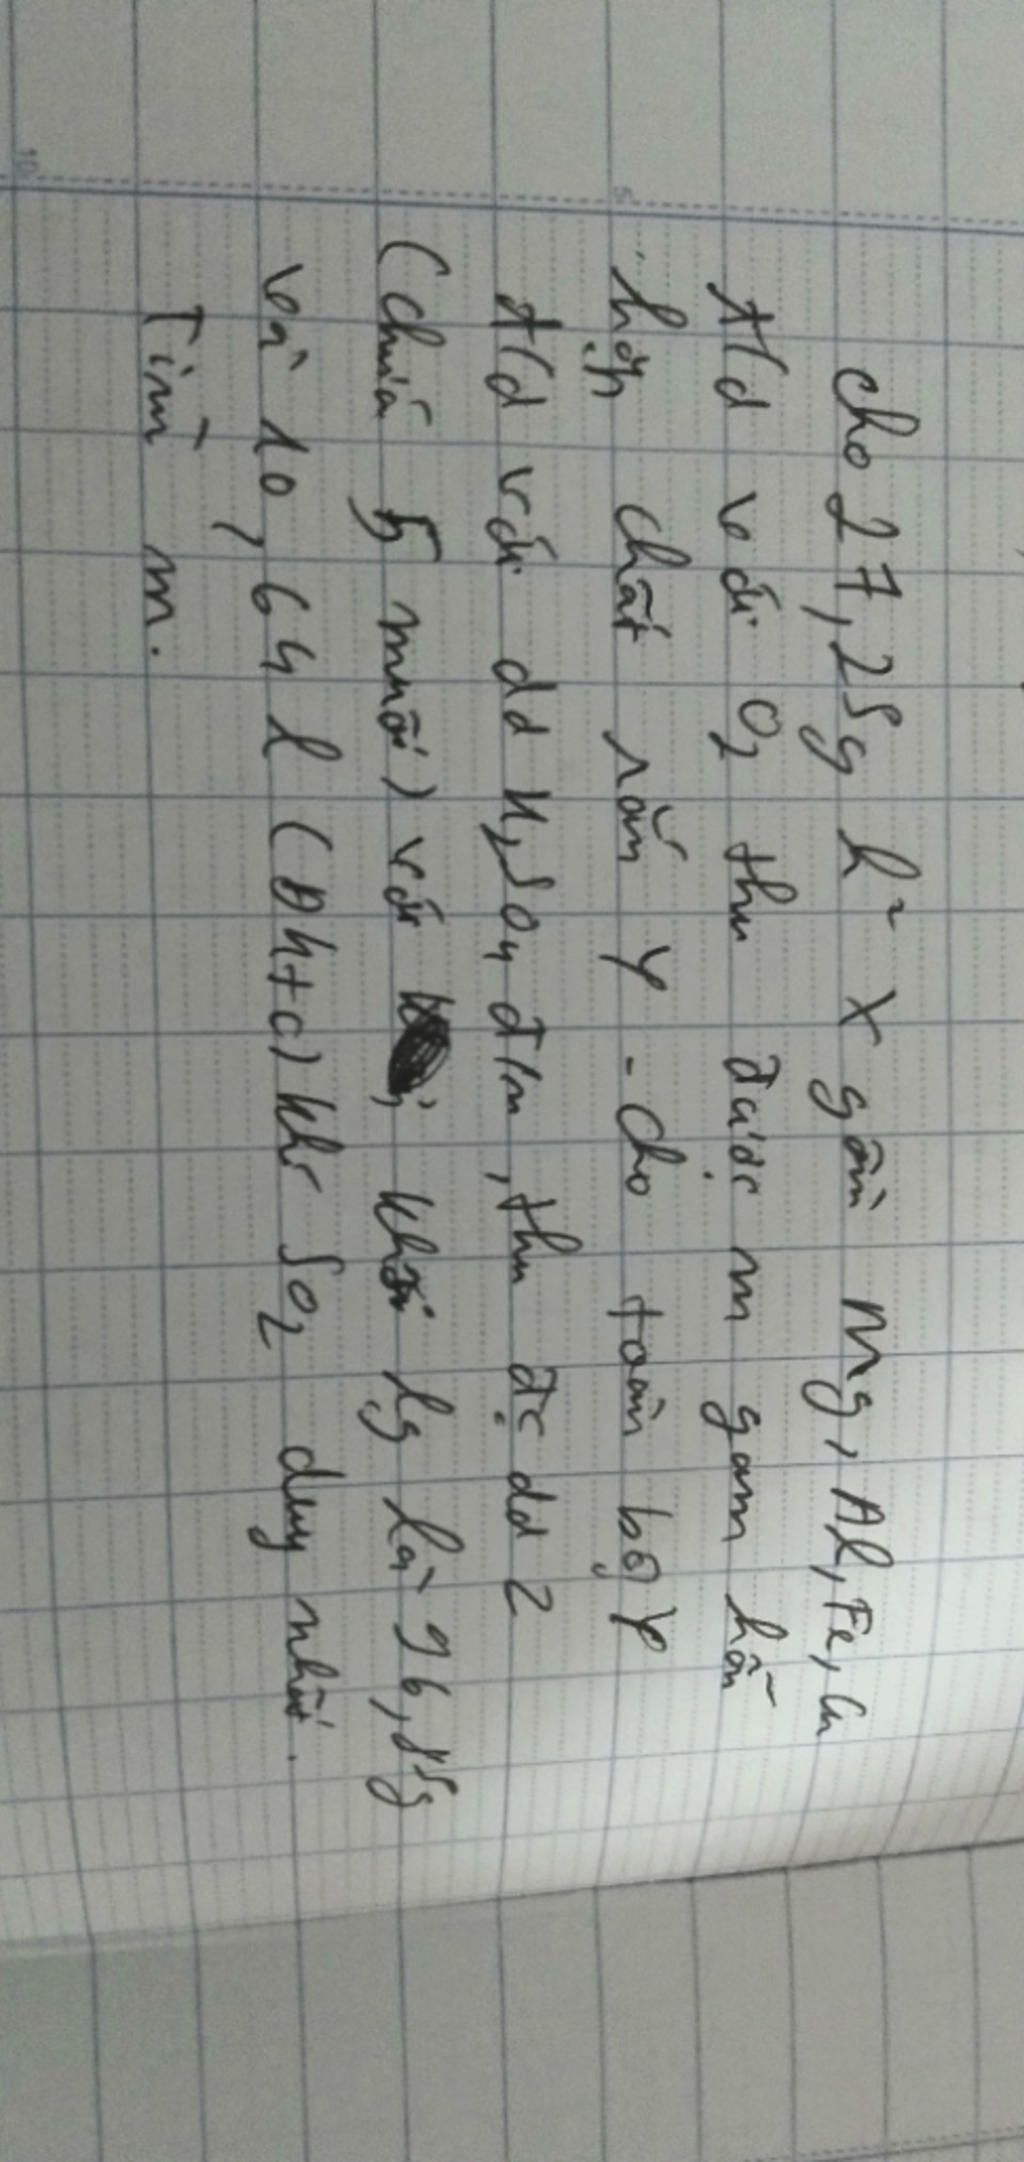 Cho 27,25g h² X gồm Mg, Al, Fe, Cu
t/d với O2 thu được m gam hỗn
hợp chất rắn Y. Cho toàn bộ Y
t/d với dd H2SO4 đ/n, thu đc dd Z
(chứa 5 muối) với khối lg là 96,85g
và 10,64 l (Đktc) khí SO2 duy nhất.
Tìm m.
10
5